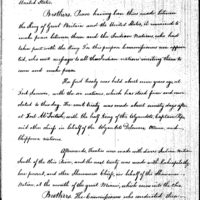 United States.
Brothers. Peace having been thus made between
the King of Great Britain and the United States, it remained to
make peace between them and the Indian Nations who had
taken part with the King. For this purpose Commissioners were appoin-
ted, who sent messages to all those Indian nations inviting them to
come and make peace.
The first treaty was held about nine years ago, at
Fort Stanwix, with the six nations, which has stood firm and un-
violated to this day. The next treaty was made about ninety days after
at Fort McIntosh, with the half King of the Wyandots, Captain Pipe,
and other chiefs in behalf of the Wyandots, Delaware, Ottawa, and
Chippewa nations.
Afterwards treaties were made with divers Indian nations
South of the Ohio River, and the next treaty was made with
her present, and other Shawanese Chiefs, in behalf of the Shawanese
Nation, at the mouth of the great Miami, which runs into the Ohio.
Brothers. The Commissioners who conducted these